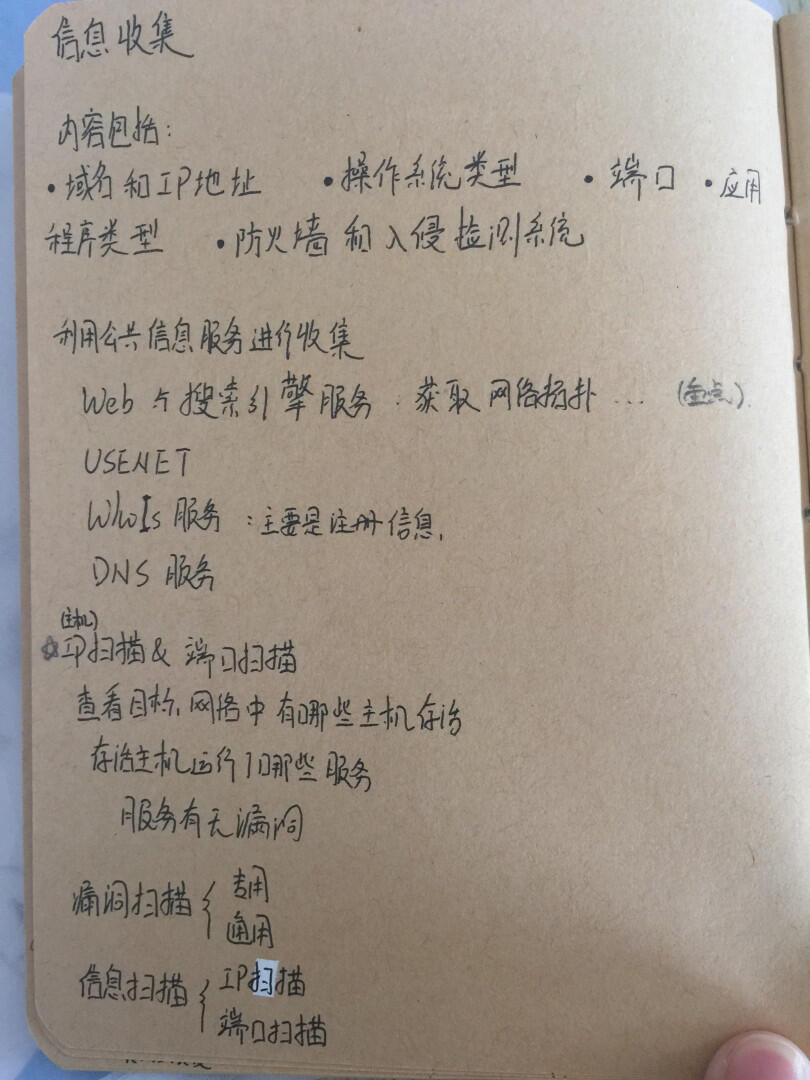 信息收集
内容包括:
•域名和IP地址 •操作系统类型 •端口 •应用
程序类型 •防火墙和入侵检测系统
利用公共信息服务进行收集
Web与搜索引擎服务.获取网络拓扑...(重点).
USENET
WhoIs服务:主要是注册信息.
DNS服务
(主机)
☆IP扫描&端口扫描
查看目标网络中有哪些主机存活
存活主机运行了哪些服务
服务有无漏洞
漏洞扫描{专用
通用
信息扫描{IP扫描
端口扫描